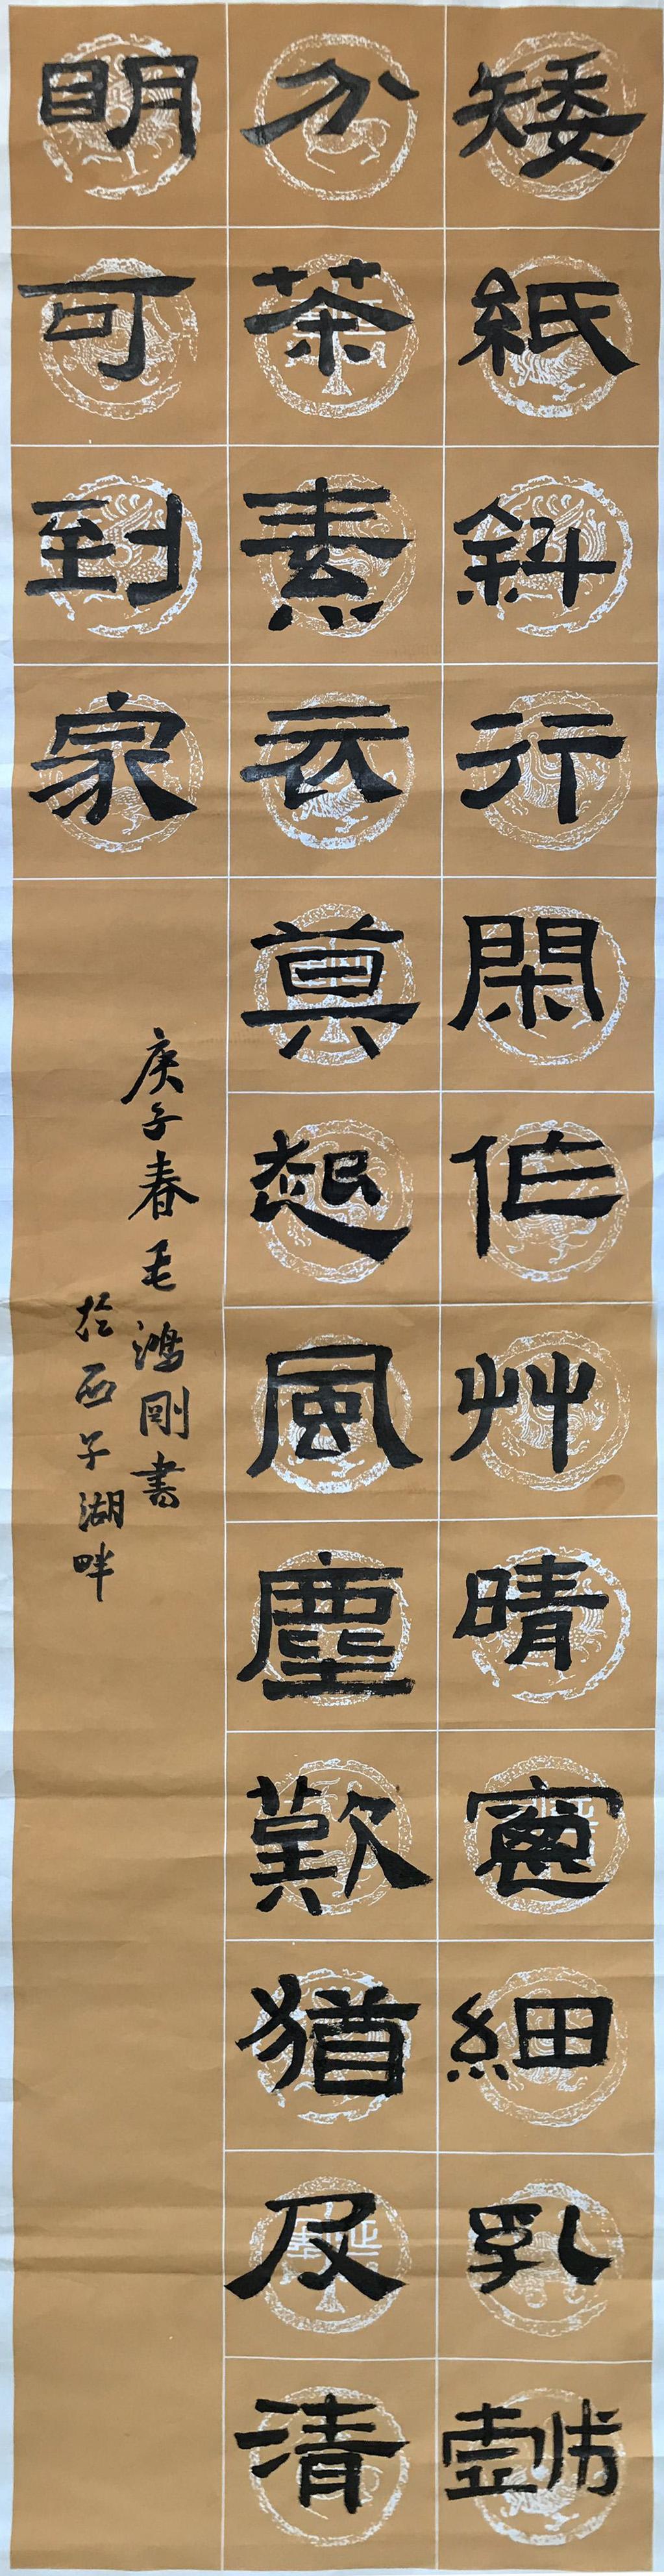 矮紙斜行閑作艸晴窗細乳戲
分茶素衣莫起風塵歎猶及清
明可到家
庚子春毛鴻剛書
於西子湖畔